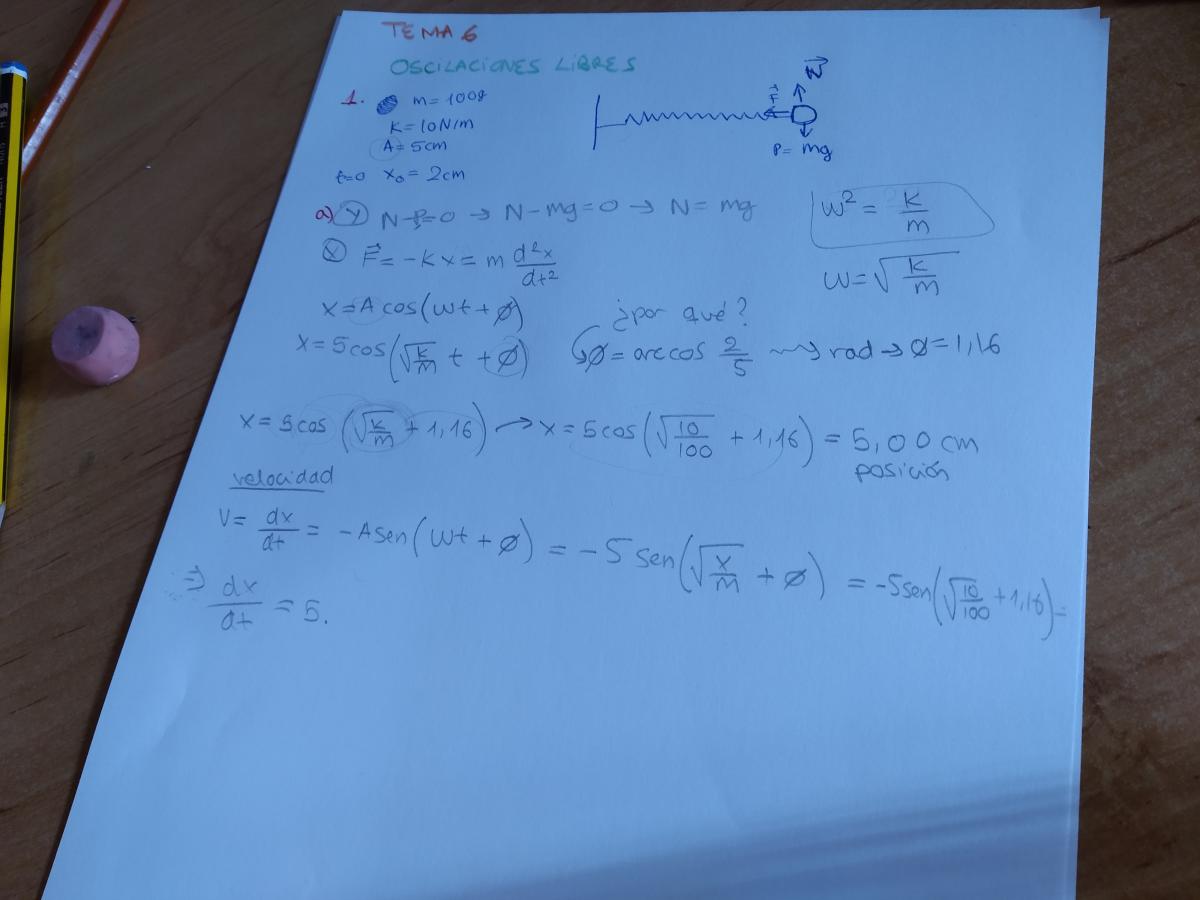 TEMA 6
OSCILACIONES LIBRES
1. m = 100g
K = 10N/m
A = 5cm
t=0 x₀ = 2cm
F⃗
N⃗
P = mg
a) y N-P=0 → N-mg=0 → N = mg
x F⃗ = -Kx = m d²x/dt²
w² = k/m
w = √(k/m)
x = A cos(wt + ø)
¿por qué?
x = 5cos(√(k/m) t + ø) ø = arccos 2/5 → rad → ø = 1,16
x = 5cos(√(k/m) + 1,16) → x = 5cos(√(10/100) + 1,16) = 5,00cm
posición
velocidad
V = dx/dt = -A sen(wt + ø) = -5 sen(√(x/m) + ø) = -5sen(√(10/100) + 1,16) =
⇒ dx/dt = 5.